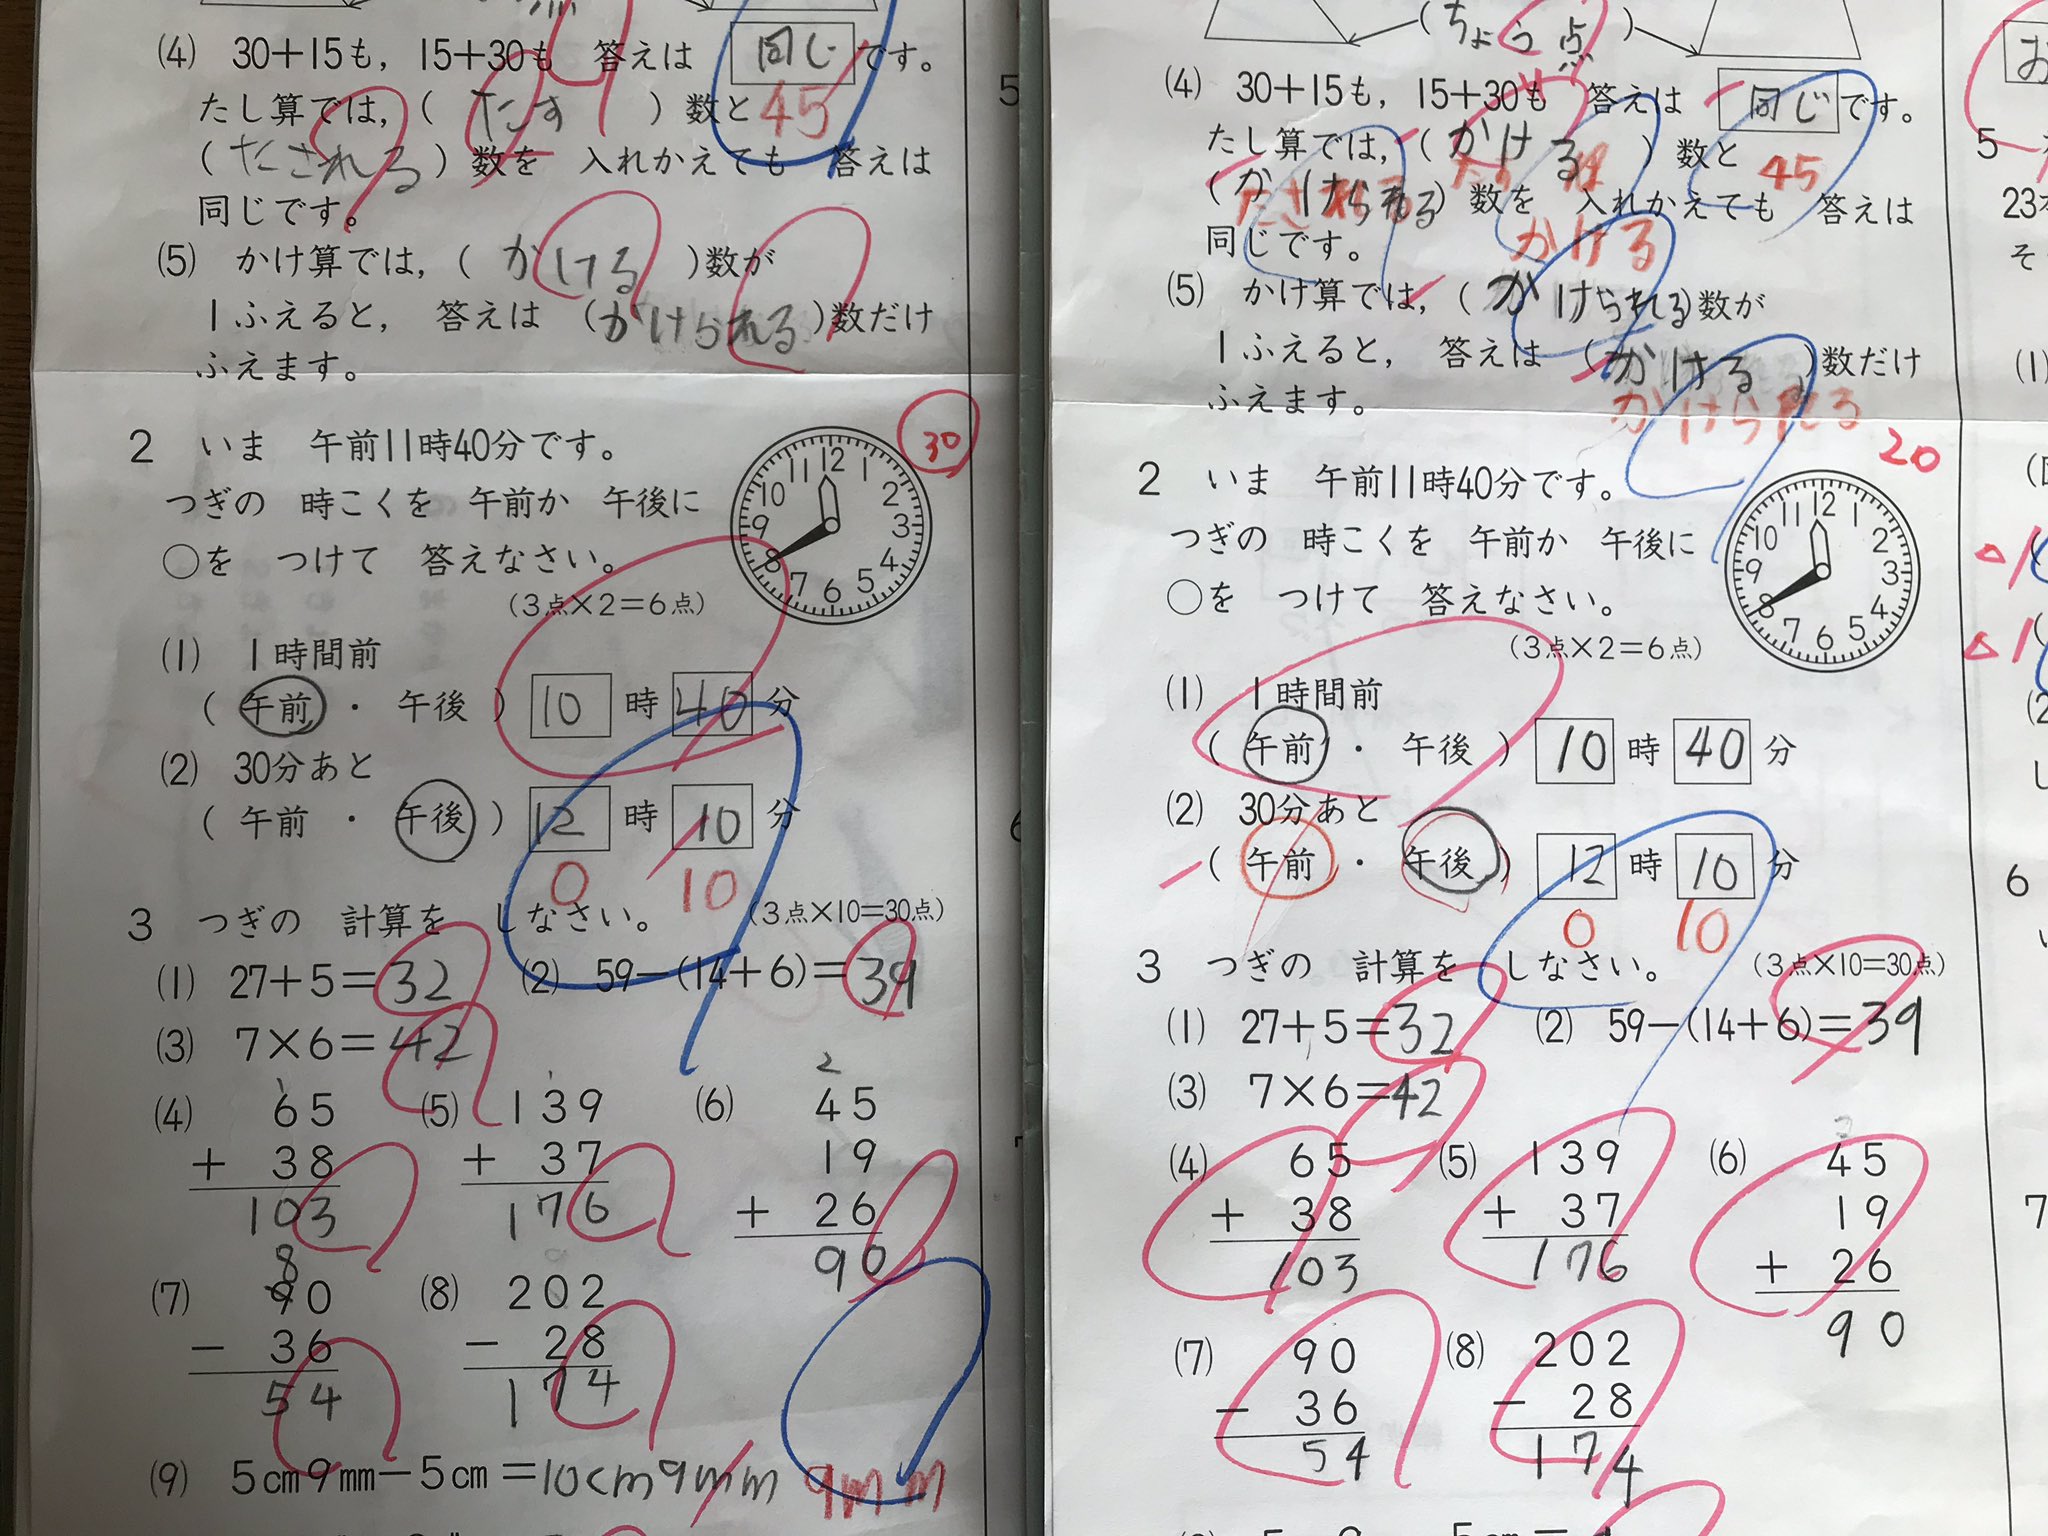 (4) 30+15も, 15+30も 答えは 同じ です。
たし算では, ( たす ) 数と 45
( たされる ) 数を 入れかえても 答えは
同じです。
(5) かけ算では, ( かける )数が
1ふえると, 答えは (かけられる)数だけ
ふえます。
30
2 いま 午前11時40分です。
つぎの 時こくを 午前か 午後に
○を つけて 答えなさい。
(3点×2=6点)
12 1 2 3 4 5 6 7 8 9 10 11
(1) 1時間前
( 午前 ・ 午後 ) 10 時 40 分
(2) 30分あと
( 午前 ・ 午後 ) 12 時 10 分
0 10
3 つぎの 計算を しなさい。 (3点×10=30点)
(1) 27+5=32 (2) 59-(14+6)=39
(3) 7×6=42
(4) 65 (5) 139 (6) 45
+ 38 + 37 19
103 176 + 26
90
(7) 90 (8) 202
- 36 - 28
54 174
(9) 5cm9mm-5cm=10cm9mm 9mm
(ちょう点)
(4) 30+15も, 15+30も 答えは 同じ です。
たし算では, ( かける ) 数と 45
たす
( かけられる) 数を 入れかえても 答えは
たされる
同じです。 かける
(5) かけ算では, ( かけられる)数が
1ふえると, 答えは (かける )数だけ
ふえます。 かけられる
20
2 いま 午前11時40分です。
つぎの 時こくを 午前か 午後に
○を つけて 答えなさい。
(3点×2=6点)
12 1 2 3 4 5 6 7 8 9 10 11
(1) 1時間前
( 午前 ・ 午後 ) 10 時 40 分
(2) 30分あと
( 午前 ・ 午後 ) 12 時 10 分
0 10
3 つぎの 計算を しなさい。 (3点×10=30点)
(1) 27+5=32 (2) 59-(14+6)=39
(3) 7×6=42
(4) 65 (5) 139 (6) 45
+ 38 + 37 19
103 176 + 26
90
(7) 90 (8) 202
- 36 - 28
54 174
お
5
23
そ
(1)
△1
△1
6
7